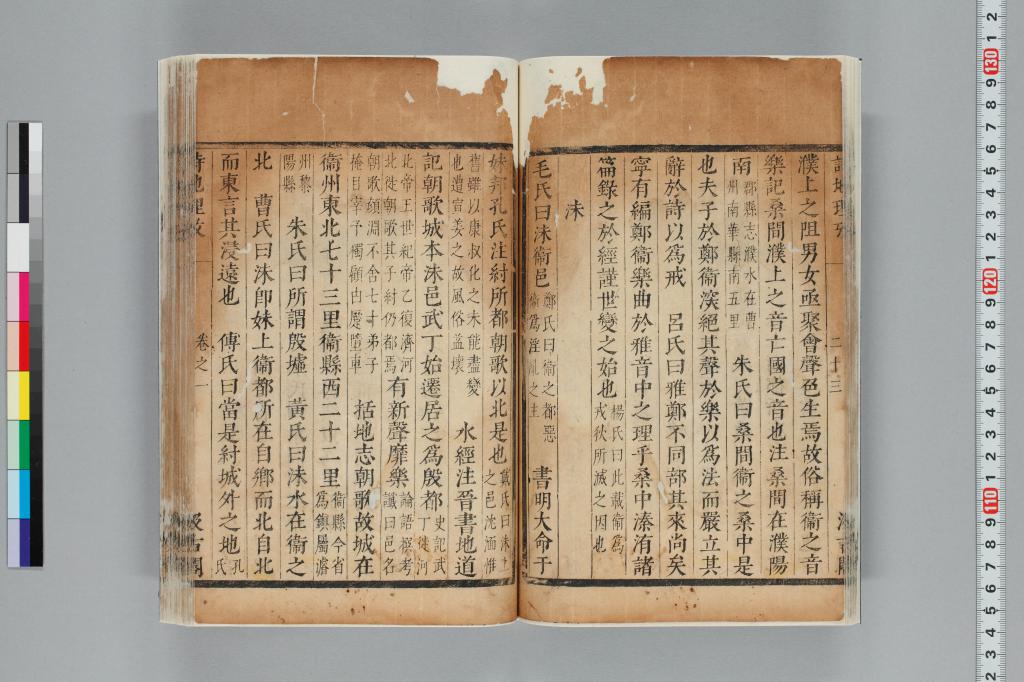 濮上之阻男女亟聚會聲色生焉故俗稱衞之音
樂記桑間濮上之音亡國之音也注桑間在濮陽
南郡縣志濮水在曹州南華縣南五里 朱氏曰桑間衞之桑中是
也夫子於鄭衞深絕其聲於樂以爲法而嚴立其
辭於詩以爲戒 呂氏曰雅鄭不同部其來尚矣
寧有編鄭衞樂曲於雅音中之理乎桑中溱洧諸
篇錄之於經謹世變之始也楊氏曰此載衞爲戎狄所滅之因也
沬
毛氏曰沬衞邑鄭氏曰衞之都惡衞爲淫亂之主 書明大命于
妹邦孔氏注紂所都朝歌以北是也戴氏曰沬土之邑沈湎惟
舊雖以康叔化之未能盡變也遭宣姜之故風俗益壞 水經注晉書地道
記朝歌城本沬邑武丁始遷居之爲殷都史記武丁徙河
北帝王世紀帝乙復濟河北徙朝歌其子紂仍都焉 有新聲靡樂論語撰考讖曰邑名
朝歌顏淵不舍七十弟子掩目宰予獨顧由蹙墮車 括地志朝歌故城在
衞州東北七十三里衞縣西二十二里衞縣今省爲鎭屬濬
州黎陽縣 朱氏曰所謂殷墟 黃氏曰沬水在衞之
北 曹氏曰沬卽妹上衞都所在自鄉而北自北
而東言其浸遠也 傅氏曰當是紂城外之地孔氏
詩地理攷
卷之一
汲古閣
二十三